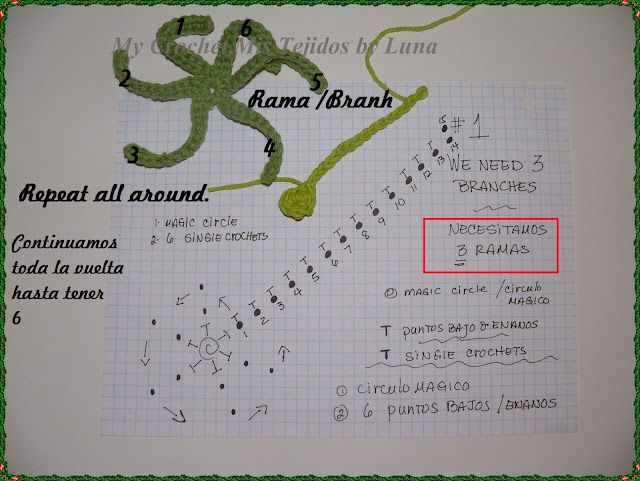 My Crochet Mis Tejidos by Luna
1
6
2
5
Rama /Branh
3
4
Repeat all around.
Continuamos
toda la vuelta
hasta tener
6
# 1
WE NEED 3
BRANCHES
NECESITAMOS
3 RAMAS
1- MAGIC CIRCLE
2- 6 SINGLE CROCHETS
T T T T T T T T T T T T T
1 2 3 4 5 6 7 8 9 10 11 12 13 14 15
MAGIC CIRCLE / CIRCULO
MAGICO
T PUNTOS BAJO O ENANOS
T SINGLE CROCHETS
① CIRCULO MAGICO
② 6 PUNTOS BAJOS / ENANOS